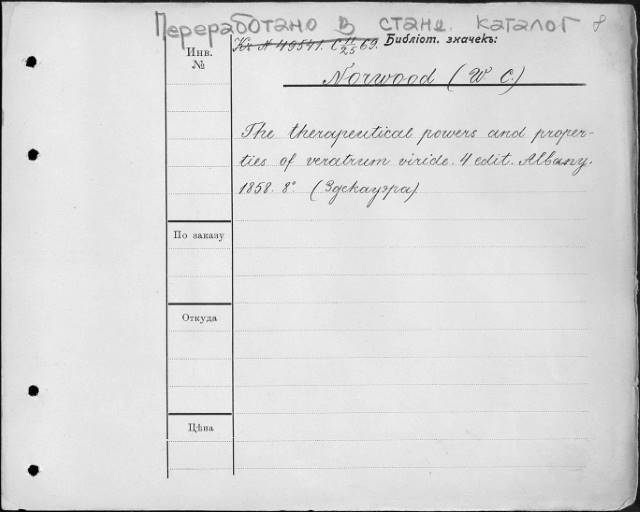 Переработано в станд. каталог 8
Кк № 49541. С 11/25 69. Библіот. значекъ:
Инв. №
Norwood (W C.)
The therapeutical powers and proper-
ties of veratrum viride. 4 edit. Albany.
1858. 8° (Эдекауэра)
По заказу
Откуда
Цѣна